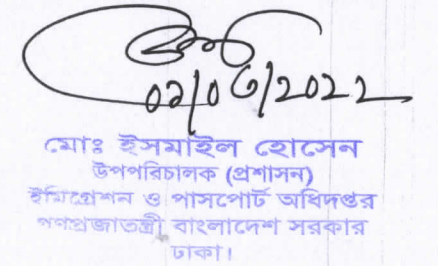 02/06/2022
মোঃ ইসমাইল হোসেন
উপপরিচালক (প্রশাসন)
ইমিগ্রেশন ও পাসপোর্ট অধিদপ্তর
গণপ্রজাতন্ত্রী বাংলাদেশ সরকার
ঢাকা।